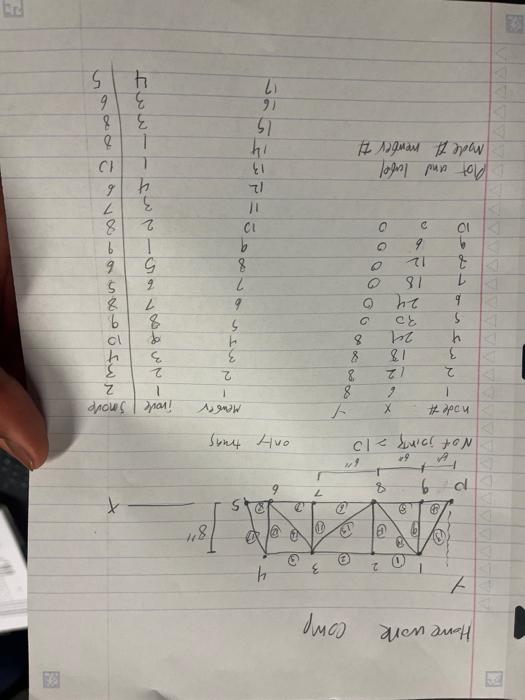 Homework comp
Y
1 2 3 4
1 2 3
8"
9 8 7 6 5 X
6" 6" 6"
Not joints = 10 only truss
node # X Y Member inode jnode
1 6 8 1 1 2
2 12 8 2 2 3
3 18 8 3 3 4
4 24 8 4 9 10
5 30 0 5 8 9
6 24 0 6 7 8
7 18 0 7 6 5
8 12 0 8 5 6
9 6 0 9 1 9
10 0 0 10 2 8
11 3 7
12 4 6
Plot and label 13 1 10
node # member # 14 1 8
15 3 8
16 3 6
17 4 5